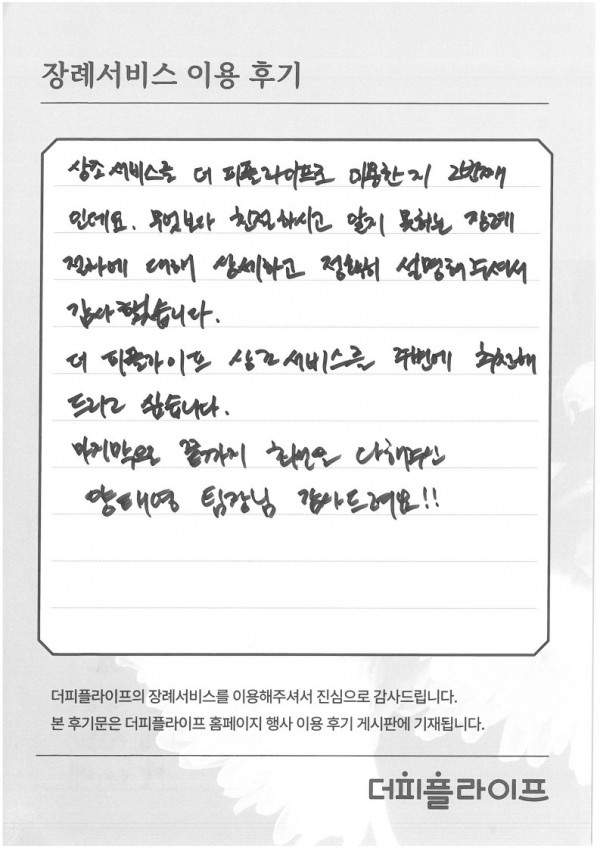 장례서비스 이용 후기
상조서비스를 더 피플라이프로 이용한지 2번째
인데요. 무엇보다 친절하시고 알지 못하는 장례
절차에 대해 상세하고 정확히 설명해주셔서
감사했습니다.
더 피플라이프 상조서비스를 주변에 추천해
드리고 싶습니다.
마지막으로 끝까지 최선을 다해주신
양태영 팀장님 감사드려요!!
더피플라이프의 장례서비스를 이용해주셔서 진심으로 감사드립니다.
본 후기문은 더피플라이프 홈페이지 행사 이용 후기 게시판에 기재됩니다.
더피플라이프